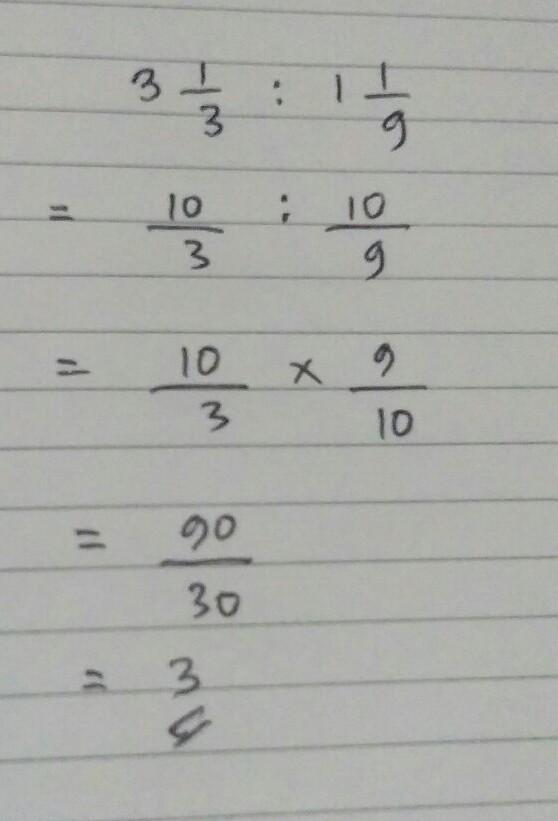 3 1/3 : 1 1/9
= 10/3 : 10/9
= 10/3 × 9/10
= 90/30
= 3